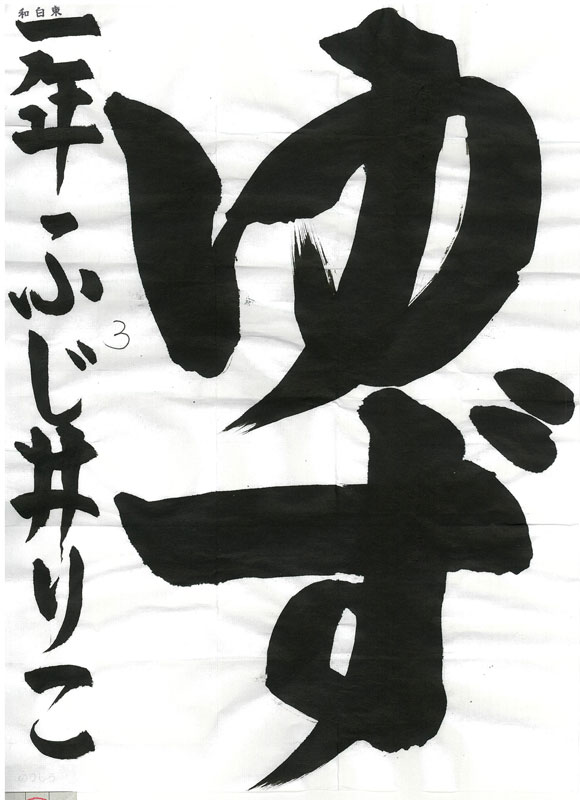 ゆず
一年 ふじ井りこ
和白東
3